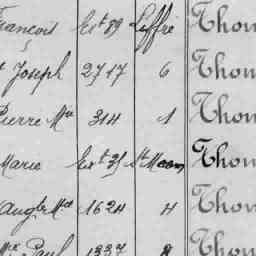 François Ext 89 Liffré Thom
t Joseph 2717 6 Thom
Pierre Mie 314 1 Thom
Marie Ext 31 St Thom
1624 4 Thom
Paul 1337 Thom